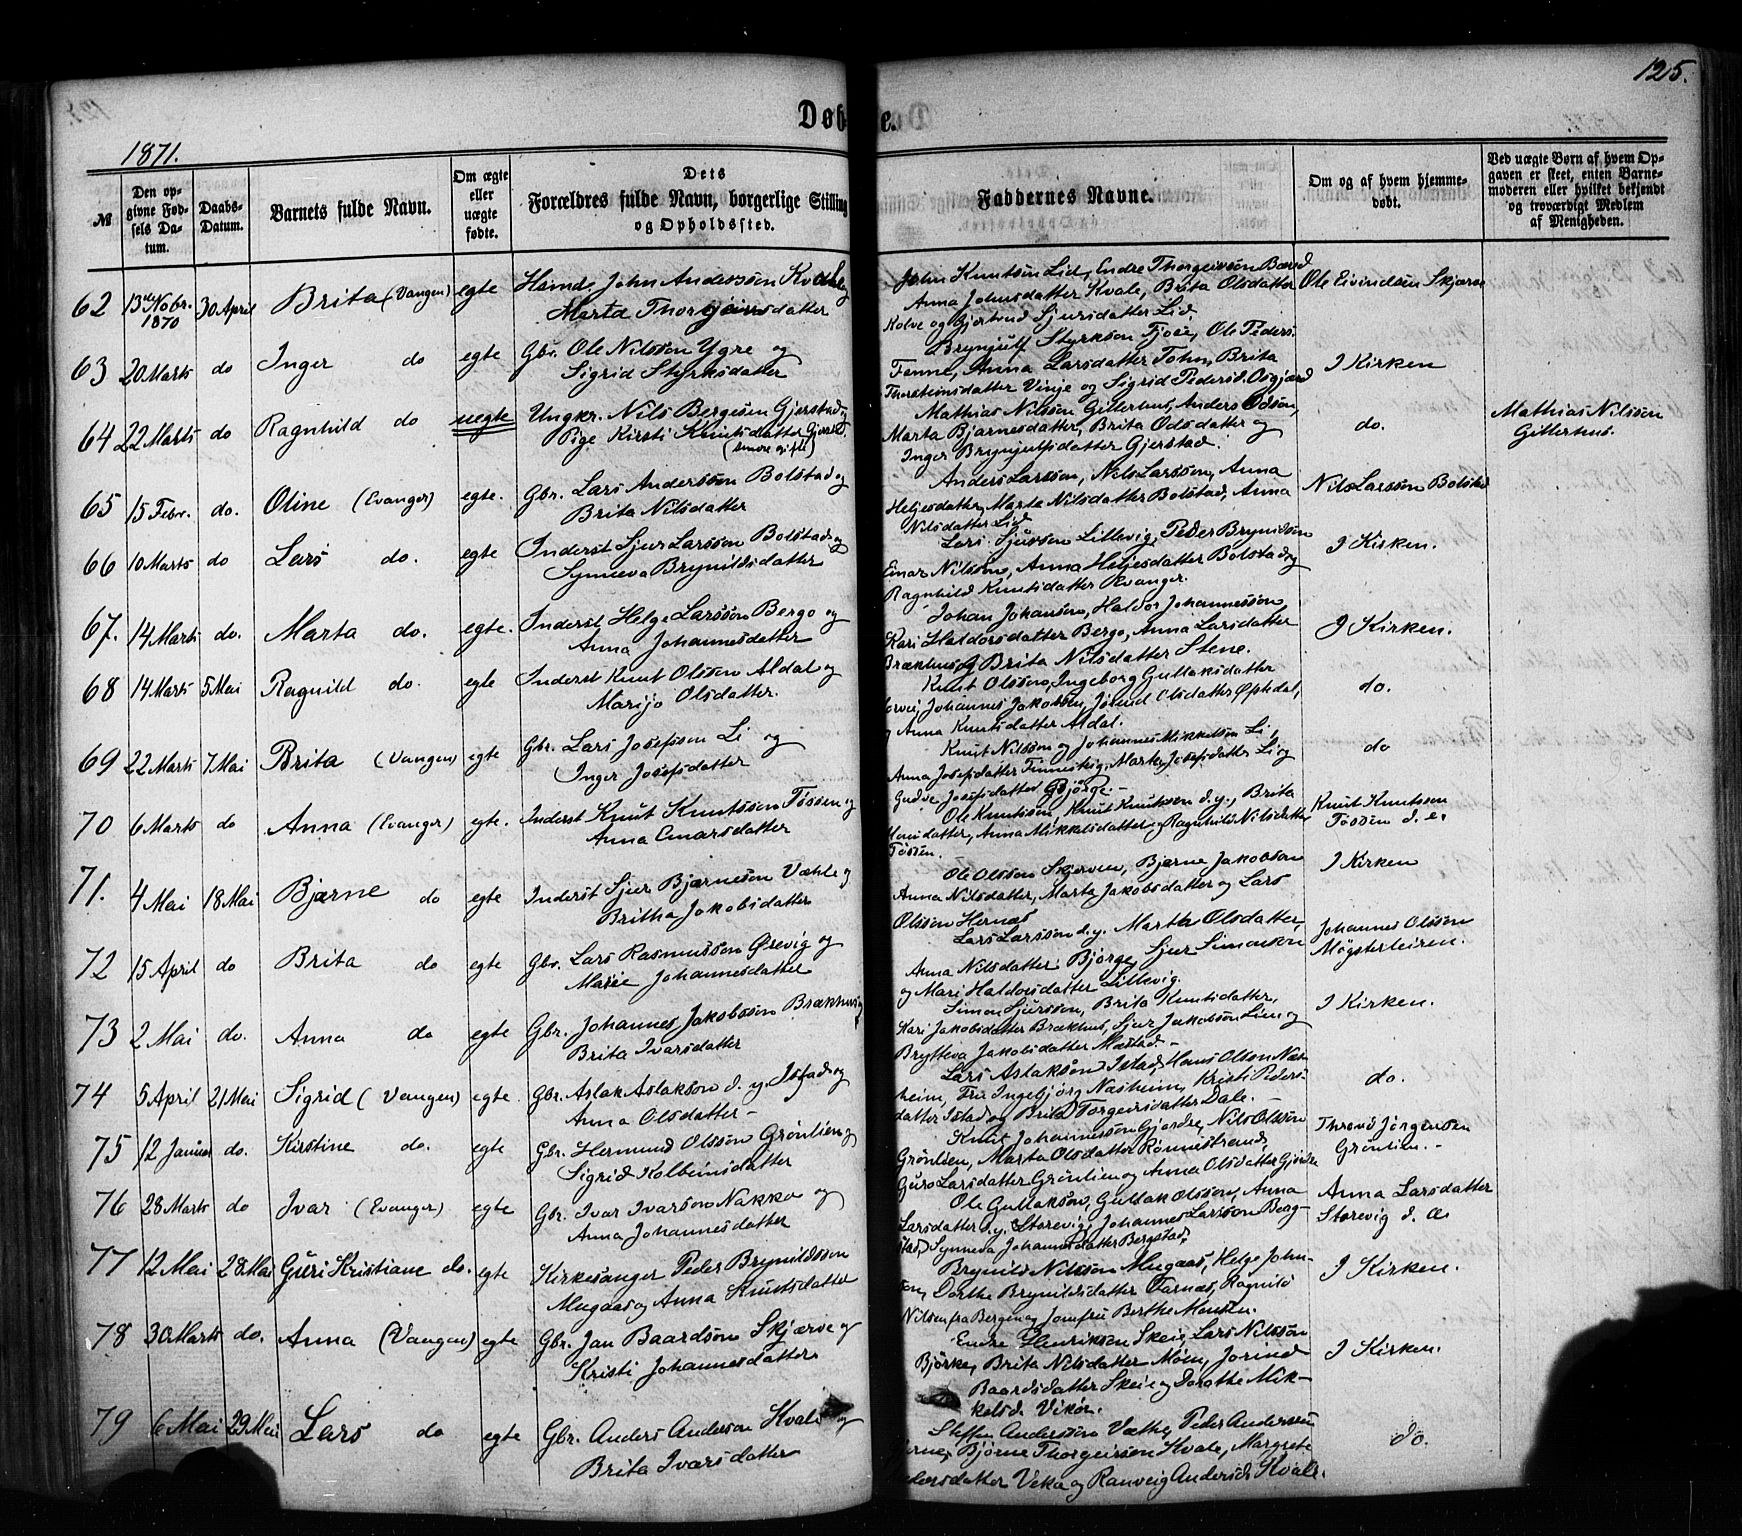 125.
Døb
e.
1871.
№
Den opgivne Fødsels Datum.
Daabs-Datum.
Barnets fulde Navn.
Om ægte eller uægte fødte.
Dets Forældres fulde Navn, borgerlige Stilling og Opholdssted.
Faddernes Navne.
Om og af hvem hjemmedøbt.
Ved uægte Børn af hvem Opgaven er skeet, enten Barnemoderen eller hvilket bekjendt og troværdigt Medlem af Menigheden.
62 13de Nobr. 1870 30 April Brita (Vangen) egte Hsmd. John Anderssøn Kvale
Marta Thorgeirsdatter
John Knutsøn Lid, Endre Thorgeirssøn
Anna Johnsdatter Kvale, Brita Olsdatter
Kolve og Gjertrud Sjursdatter Lid.
Ole Eivindsøn Skjerve
63 20 Marts do Inger do egte Gbr. Ole Nilssøn Ygre og
Sigrid Styrksdatter
Brynjulf Styrksøn Fjose, Ole Peders.
Fenne, Anna Larsdatter Tohn, Brita
Vinje og Sigrid Pedersd.
I Kirken
64 22 Marts do Ragnhild do uegte Ungkr. Nils Bergesen Gjerstad og
Pige Kirsti Knutsdatter Gjerstad.
Mathias Nilssøn Gitlerhus, Anders Odsøn,
Marta Bjarnesdatter, Brita Odsdatter og
Inger Brynjulfsdatter Gjerstad.
do.
Mathias Nilssøn
Gitlerhus.
65 15 Febr. do. Oline (Evanger) egte. Gbr. Lars Anderssøn Bolstad og
Brita Nilsdatter
Anders Larssøn, Nils Larssøn, Anna
Heljesdatter, Marta Nilsdatter Bolstad, Anna
Nilsdatter Lid
Nils Larssøn Bolstad
66 10 Marts do Lars do. egte Inderst Sjur Larssøn Bolstad og
Synneva Brynildsdatter
Lars Sjurssøn Lillevig, Peder Brynildsøn
Einar Nilssøn, Anna Heljesdatter Bolstad og
Ragnhild Knutsdatter Evanger.
I Kirken.
67. 14 Marts do. Marta do. egte. Inderst Helge Larssøn Berge og
Anna Johannesdatter
Johan Johansen, Haldor Johannessøn
Kari Haldorsdatter Berge, Anna Larsdatter
Brækhus og Brita Nilsdatter Stene.
I Kirken.
68 14 Marts 5 Mai Ragnild do. egte Inderst Knut Olssøn Aldal og
Marijo Olsdatter.
Knut Olssøn, Ingeborg Gullaksdatter
Johannes Jakobsen, Jorend Olsdatter
Anna Knutsdatter Aldal.
do.
69 22 Marts 7 Mai Brita (Vangen) egte Gbr. Lars Josefssøn Li og
Inger Josefsdatter
Knut Nilssøn og Johannes Mikkelsøn Li,
Anna Josefsdatter Finneskig, Marta Josefsdatter Li og
Gudve Josefsdatter Gjørge.
do
70 6 Marts do Anna (Evanger) egte. Inderst Knut Knutssøn Tøssen og
Anna Einarsdatter
Ole Knutssøn, Knut Knutssøn d. y., Brita
Anna Mikkelsdatter og Ragnhild Nilsdatter
Tøssen.
Knut Knutssøn
Tøssen d. e.
71. 4 Mai 18 Mai Bjarne do egte Inderst Sjur Bjarnesøn Væhle og
Britha Jakobsdatter
Ole Olssøn Skjerven, Bjarne Jakobsøn
Anna Nilsdatter, Marta Jakobsdatter og Lars
Olssøn Hernæs
I Kirken
72 15 April do Brita do egte Gbr. Lars Rasmussøn Ørevig og
Marie Johannesdatter
Lars Larssøn d. y. Marta Olsdatter,
Anna Nilsdatter Bjørge, Sjur Simonsøn
og Mari Haldorsdatter Lillevig.
Johannes Olssøn
Møgsterteiren.
73 2 Mai do. Anna do egte Gbr. Johannes Jakobssøn Brækhus og
Brita Ivarsdatter
Simon Sjurssøn, Brita Knutsdatter,
Kari Jakobsdatter Brækhus, Sjur Jakobsøn Lien og
Brytteva Jakobsdatter Mæstad
I Kirken.
74 5 April 21 Mai Sigrid (Vangen) egte. Gbr. Aslak Aslaksøn d. y. Istad og
Anna Olsdatter
Lars Aslaksøn Istad, Hans Olsøn Næs-
heim, Fru Ingebjørg Næsheim, Kristi Peders-
datter Istad og Brita Torgeirsdatter Dale.
do.
75 12 Januar do. Kirstine do. egte Gbr. Hermund Olssøn Grønlien og
Sigrid Kolbeinsdatter
Knut Johannessøn Gjørdre, Nils Olssøn
Grønlien, Marta Olsdatter Rønnestrand,
Guro Larsdatter Grønlien og Anna Olsdatter Gjørdre
Thrond Jørgensen
Grønlien.
76 28 Marts do Ivar (Evanger) egte Gbr. Ivar Ivarsøn Nakke og
Anna Johannesdatter
Ole Gullaksøn, Gullak Olssøn, Anna
Larsdatter d. y. Storevig, Johannes Larssøn Berg-
stad, Synneva Johannesdatter Bergstad.
Anna Larsdatter
Storevig d. æ.
77 12 Mai 28 Mai Guri Kristiane do. egte Kirkesanger Peder Brynildssøn
Mugaas og Anna Knutsdatter
Brynild Nilssøn Mugaas, Helge John-
Dorthe Brynildsdatter Farnæs, Ragnild
Nilsen fra Bergen og Jomfru Berthe Monsen.
I Kirken.
78 30 Marts do. Anna (Vangen) egte Gbr. Jan Baardsøn Skjærve og
Kristi Johannesdatter
Endre Henriksen Skeie, Lars Nilssøn
Bjørke, Brita Nilsdatter Møen, Jorind
Baardsdatter Skeie og Dorothe Mik-
kelsd. Vikør.
I Kirken.
79 6 Mai 29 Mai Lars do egte Gbr. Anders Andersøn Kvale og
Brita Ivarsdatter
Steffen Anderssøn Væthe, Peder Anderssøn
Bjørne Thorgeirsøn Kvale, Margrete
Vikæ og Ranveig Andersd. Kvale.
do.